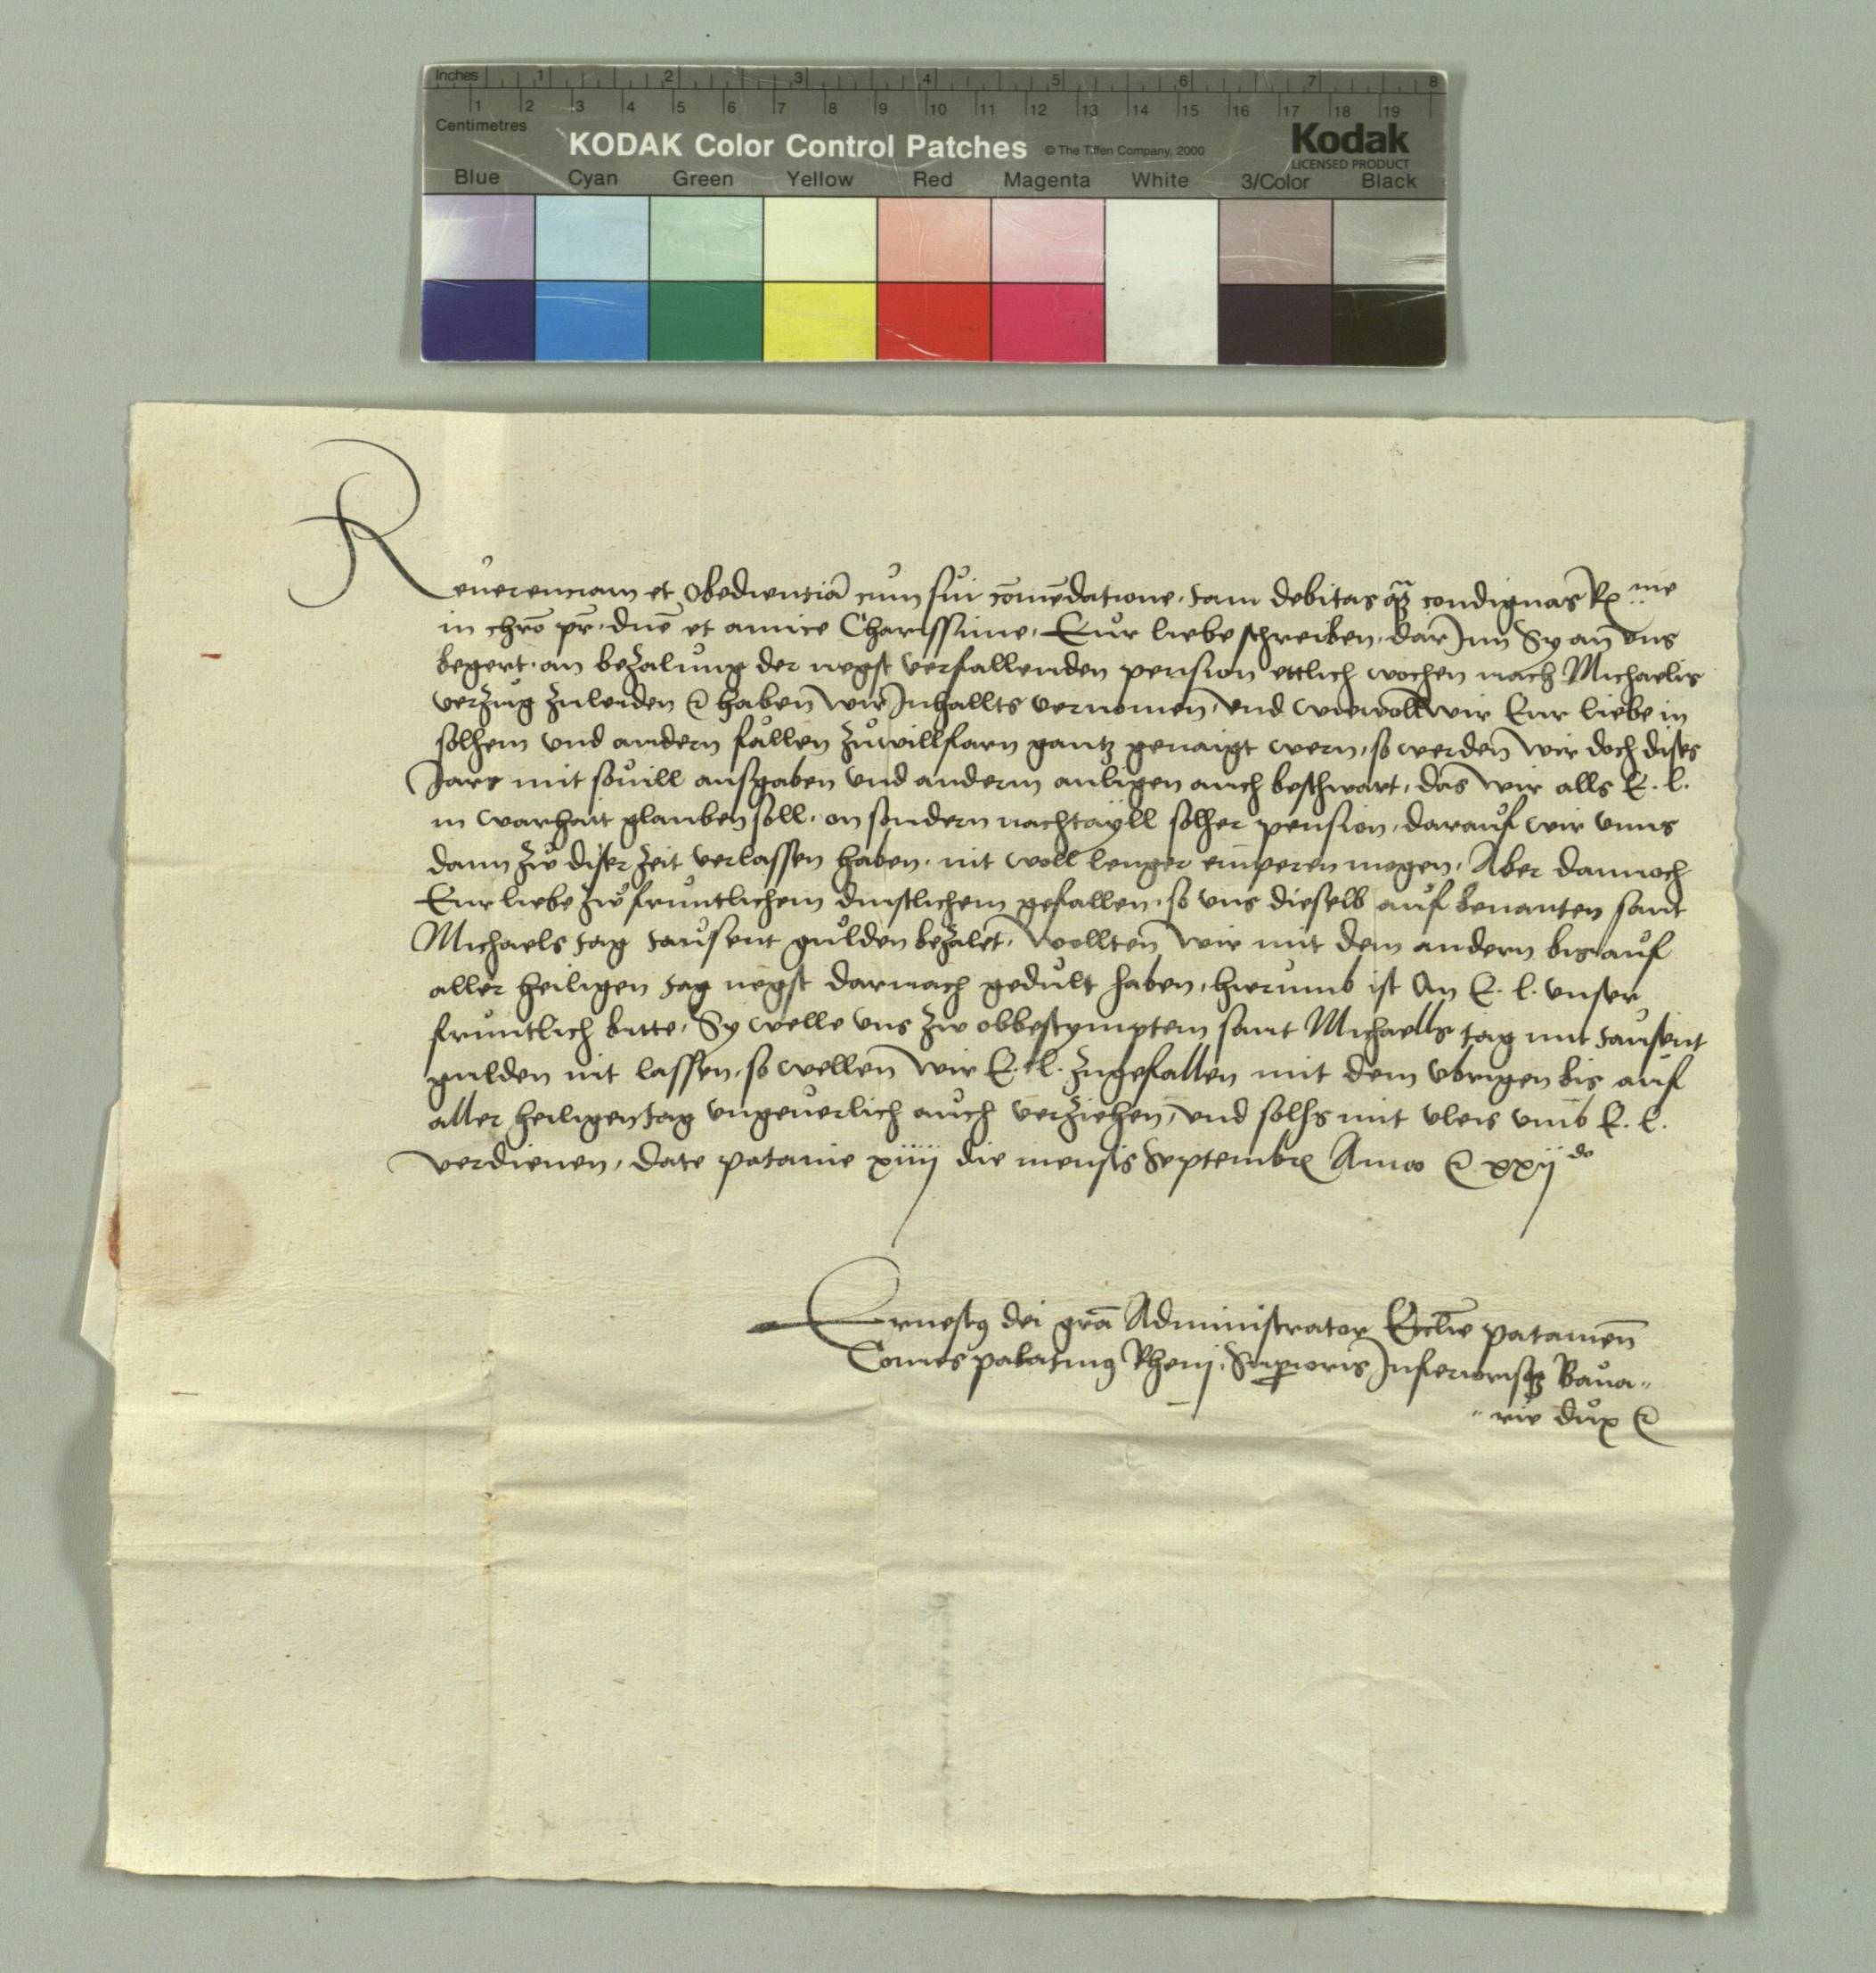 Inches 1 2 3 4 5 6 7 8
1 2 3 4 5 6 7 8 9 10 11 12 13 14 15 16 17 18 19
Centimetres
KODAK Color Control Patches © The Tiffen Company, 2000 Kodak
LICENSED PRODUCT
Blue Cyan Green Yellow Red Magenta White 3/Color Black
Reuerenciam et obedientiā cum sui cōmēdatione, tam debitas q̄ꝫ condignas R.me
in chrō pr̄, dnē et amice Charissime, Eur liebe schreiben, dar Inn Sy an vns
begert, an bezalung der negst verfallenden pension ettlich wochen nach Michaelis
verzug zuleiden ⁊c haben wir Inhallts vernomen, vnd wiewoll wir Eur liebe in
solhem vnd andern fällen zuwillfarn gantz genaigt wern, so werden wir doch dises
Jars mit souill ausgaben vnd anderm anligen auch beschwärt, das wir alls E. l.
in warhait glauben soll, on sondern nachtayll solher pension, darauf wir vnns
dann zu diser zeit verlassen haben, nit woll lenger emperen mogen, Aber dannoch
Eur liebe zu fruntlichem dinstlichem gefallen, so vns dieselb auf benanten sant
Michaels tag tausent gulden bezalet, wollten wir mit dem andern bis auf
aller heiligen tag negst darnach gedult haben, hierumb ist An E. l. vnser
fruntlich bitte, Sy welle vns zw obbestympten sant Michaells tag mit tausent
gulden nit lassen, so wellen wir E. l. zugefallen mit dem vbrigen bis auf
aller heiligen tag vngeuerlich auch verziehen, vnd solhs mit vleis vmb E. l.
verdienen, Date patauie xiiij die mensis Septembr̄ Anno ⁊c xxij do
Ernestꝯ dei grā Administrator Eccl̄ie patauien̄
Comes palatinꝯ Rheni, Superioris Inferiorisqꝫ Baua„
„rie dux ⁊c